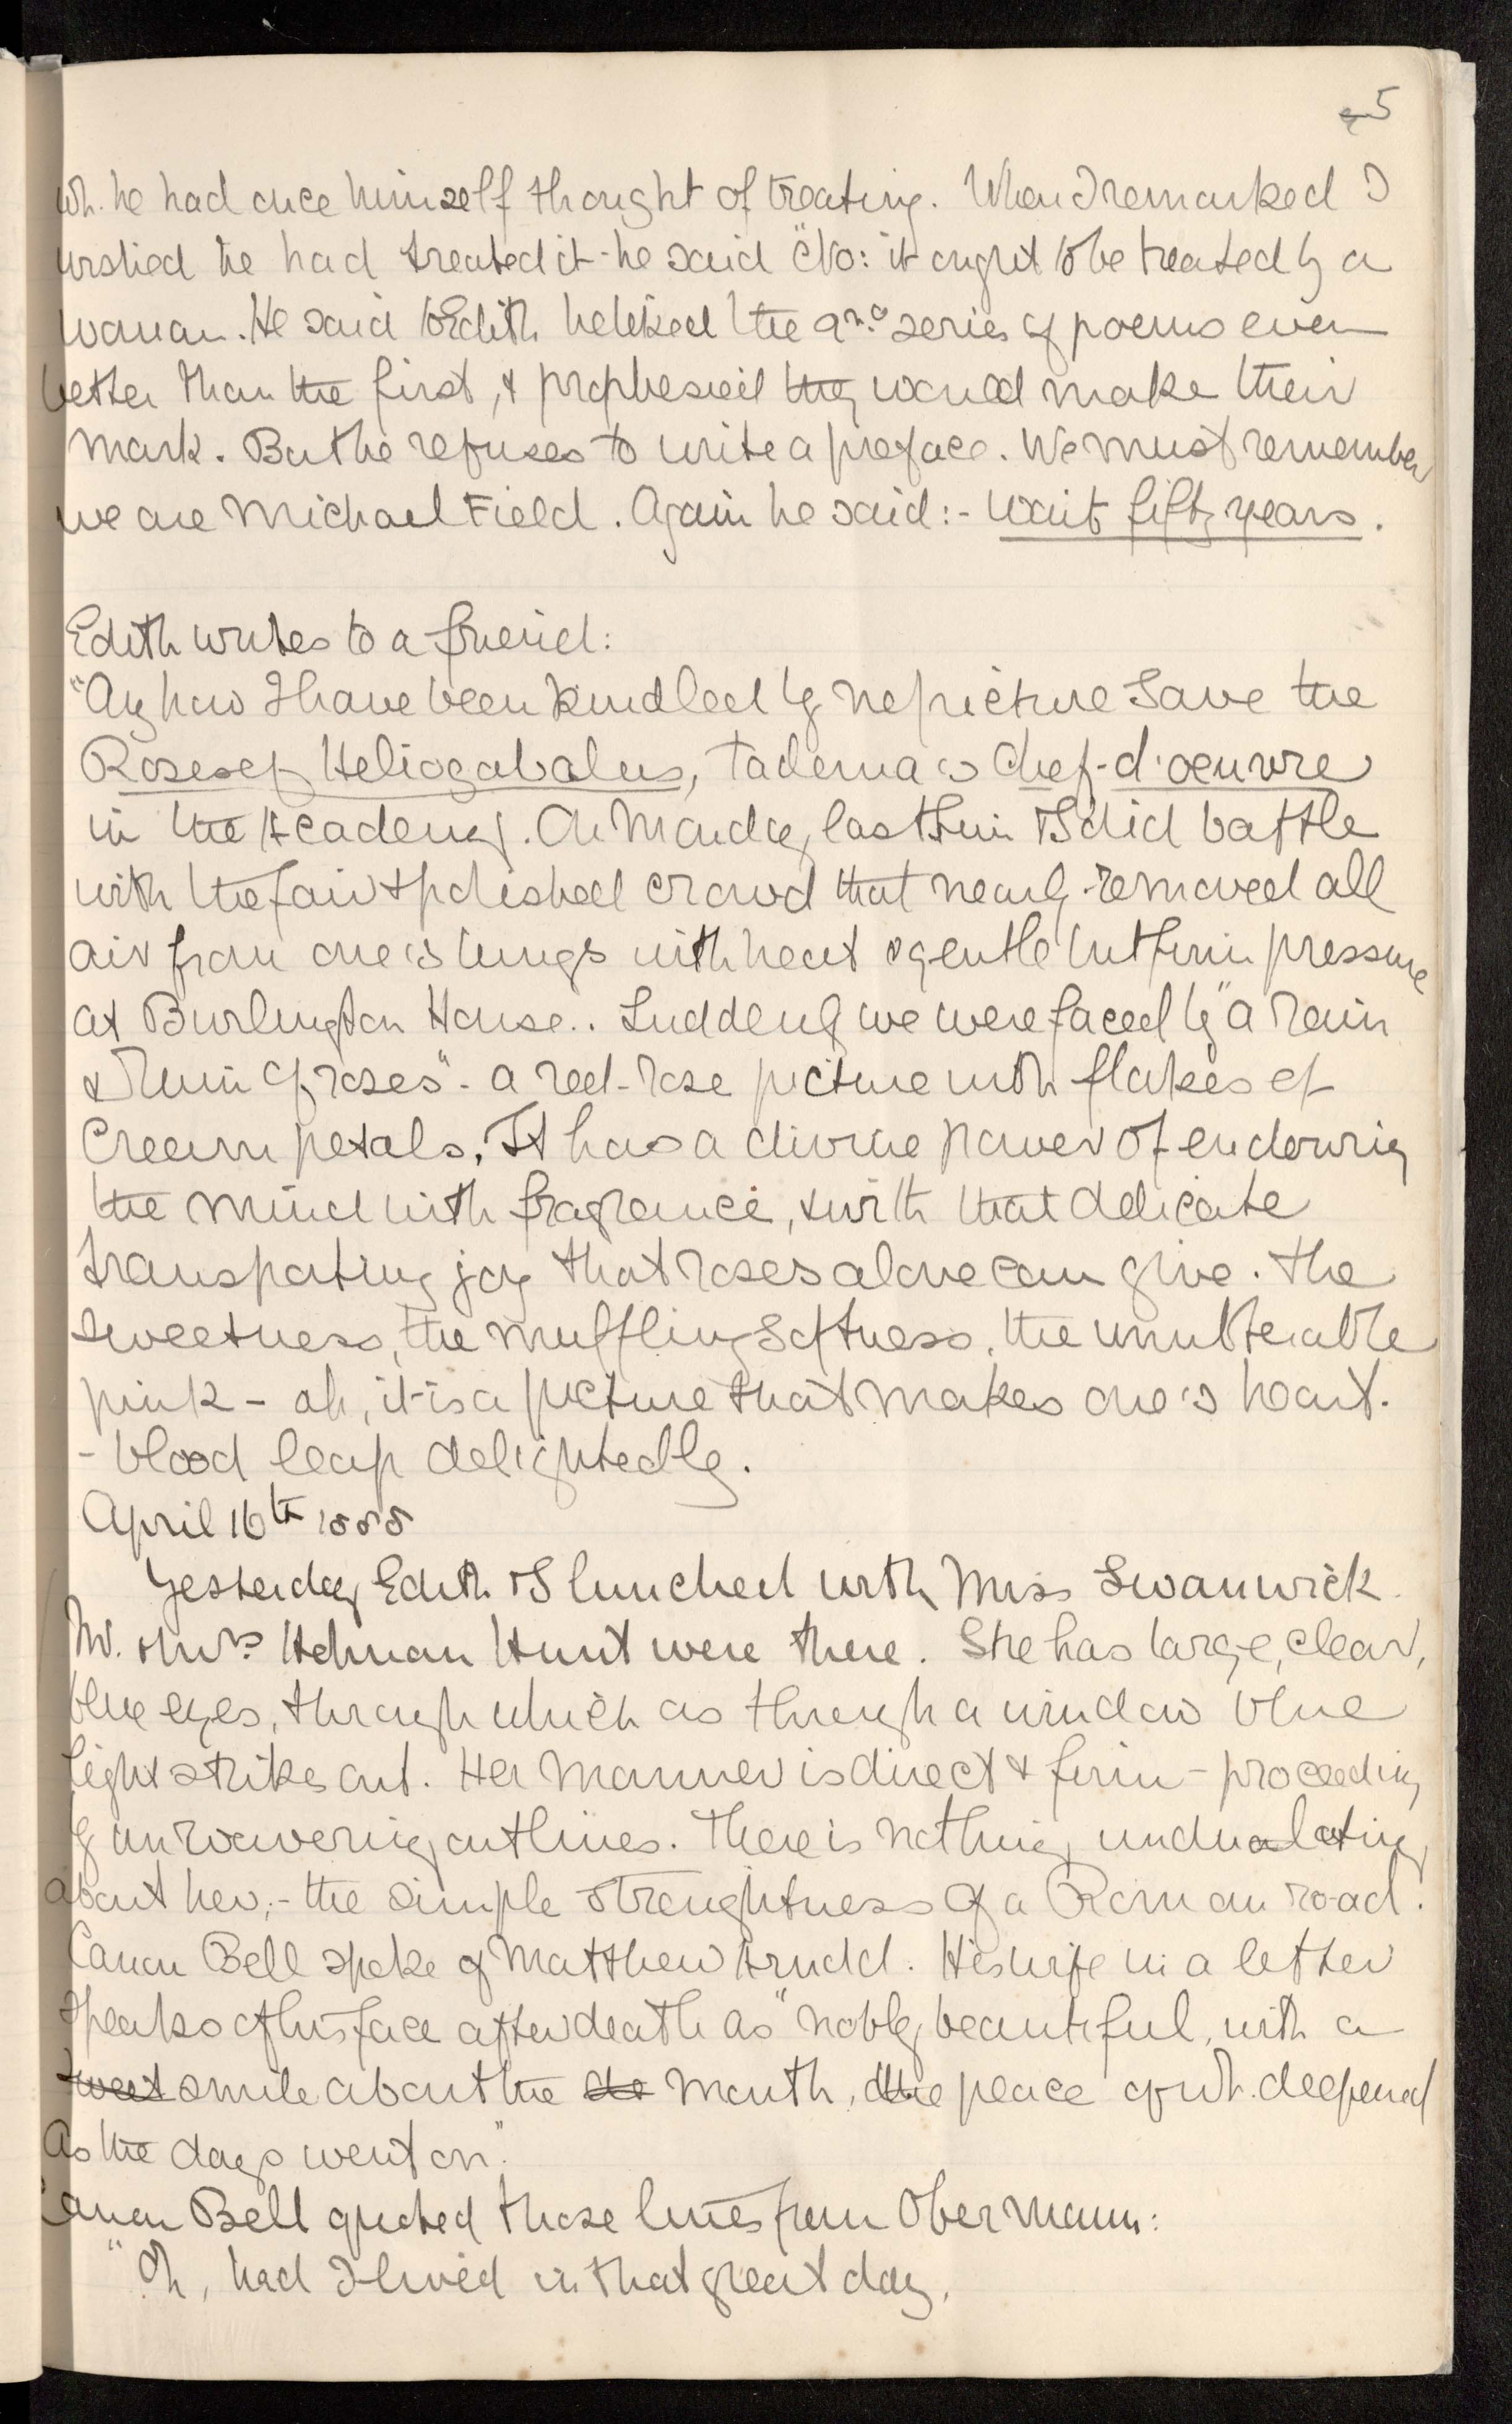 5
wh. he had once himself thought of treating. When I remarked I
wished he had treated it - he said "No: it ought to be treated by a
woman. He said to Edith he liked the 2nd series of poems even
better than the first, & prophesied they would make their
mark. But he refuses to write a preface. We must remember
we are Michael Field. Again he said:- wait fifty years.
Edith writes to a friend:
"Any how I have been kindled by no picture save the
Roses of Heliogabalus, Tadema's chef-d'oeuvre
in the Academy. On Monday last Sim & I did battle
with the fair & polished crowd that nearly removed all
air from one's lungs with heat & gentle but firm pressure
at Burlington House.. Suddenly we were faced by "a rain
& ruin of roses" - a red-rose picture with flakes of
cream petals. It has a divine power of endowing
the mind with fragrance, & with that delicate
transporting joy that roses alone can give. The
sweetness, the muffling softness, the unutterable
pink - ah, it is a picture that makes one's heart-
- blood leap delightedly.
April 16th 1888
Yesterday Edith & I lunched with Miss Swanwick.
Mr. & Mrs Holman Hunt were there. She has large, clear,
blue eyes, through which as through a window blue
light strikes out. Her manner is direct & firm - proceeding
by unwavering outlines. There is nothing undulating
about her; - the simple straightness of a Roman road.
Canon Bell spoke of Matthew Arnold. His wife in a letter
speaks of his face after death as "nobly beautiful, with a
sweet smile about the mouth, the peace of wh. deepened
as the days went on".
Canon Bell quoted those lines from Obermann:
"Oh, had I lived in that great day,